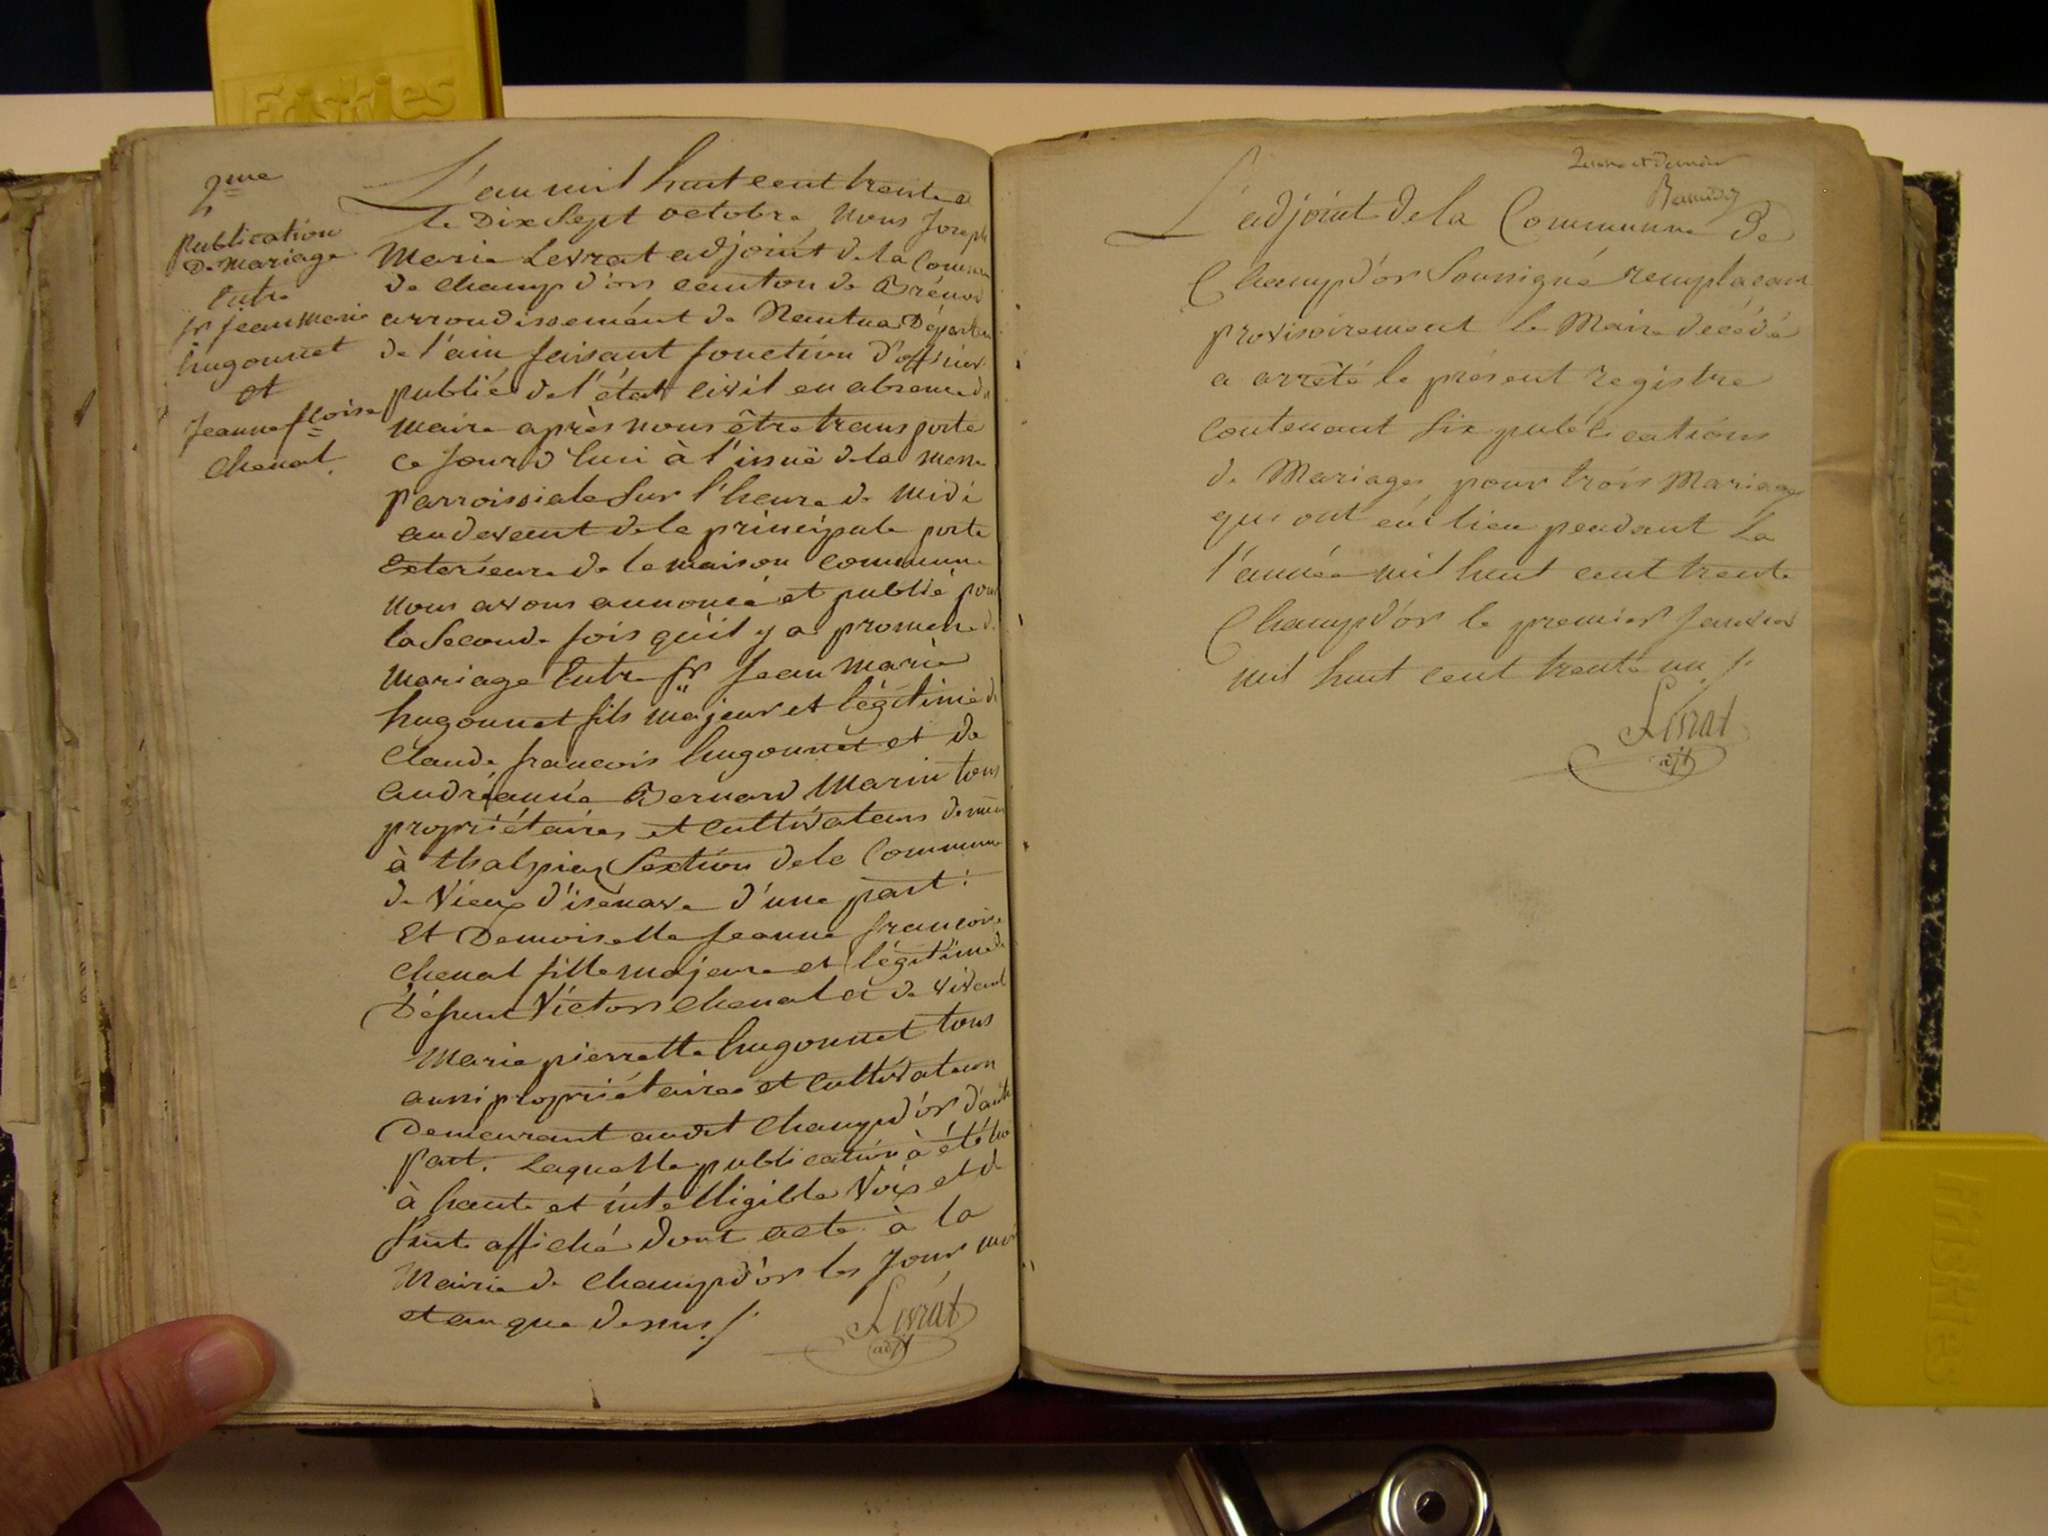 Friskies
2me
publication
De mariage
Entre
sr jean marie
hugonnet
et
jeanne fcoise
Chenal.
L'an mil huit cent trente et
le Dix Sept octobre, nous Joseph
Marie Levrat adjoint de la Commune
de champ d'or canton de Brénod
arrondissement de Nantua Départ
de l'ain faisant fonction d'officier
public de l'état civil en absence du
maire après nous être transporté
ce jourd'hui à l'issuë de la messe
parroissiale Sur l'heure de midi
au devant de la principale porte
Extérieure de la maison commune
nous avons annoncé et publié pour
la Seconde fois qu'il y a promesse de
mariage Entre sr jean marie
hugonnet fils majeur et légitime de
Claude francois hugonnet et de
andréanne Bernard Marin tous
propriétaires et cultivateurs
à thalpiez Section de la Commune
de Vieux d'isenave d'une part:
Et Demoiselle jeanne francoise
Chenal fille majeure et légitime de
Défunt Victor Chenal et de vivante
Marie pierrette hugonnet tous
aussi propriétaires et cultivateurs
Demeurant audit Champ d'or d'autre
part. Laquelle publication à été
à haute et intelligible Voix et de
Suite affiché dont acte à la
Mairie de Champ d'or les jour moi
et an que dessus ./.
Levrat
adjt
L'adjoint de la Commune de
Champ d'or Soussigné remplacant
provisoirement le Maire décédé
a arrêté le présent registre
contenant Six publications
de Mariages pour trois Mariages
qui ont eut lieu pendant La
l'année mil huit cent trente
Champ d'or le premier janvier
mil huit cent trente un ./.
Levrat
adjt
Friskies